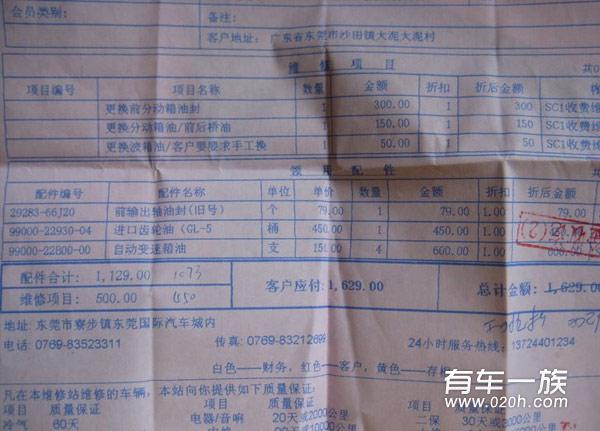 会员类别:
备注:
客户地址: 广东省东莞市沙田镇大泥大泥村
维 修 项 目
项目编号 项目名称 数量 金额 折扣 折后金额
更换前分动箱油封 1 300.00 1 300 SC1收费维
更换分动箱油/前后桥油 1 150.00 1 150 SC1收费维
更换波箱油/客户要脮求手工换 1 50.00 1 50 SC1收费维
领 用 配 件
配件编号 配件名称 单位 单价 数量 金额 折扣 折后金额
29283-66J20 前输出轴油封(旧号) 个 79.00 1 79.00 1.00 79.00
99000-22930-04 进口齿轮油（GL-5 桶 450.00 1 450.00 1.00
99000-22B00-00 自动变速箱油 支 150.00 4 600.00 1.00 600.00
配件合计: 1,129.00 1073
维修项目: 500.00 450
客户应付: 1,629.00 总计金额: 1,629.00
地址: 东莞市寮步镇东莞国际汽车城内
电话: 0769-83523311 传真: 0769-83212698 24小时服务热线: 13724401234
白色——财务, 红色——客户, 黄色——存根
凡在本维修站维修的车辆, 本站向你提供如下质量保证:
项目 质量保证 项目 质量保证 项目 质量保证
冷气 60天 电器/音响 20天或2000公里 二保 30天或3000公里
有车一族
www.020h.com